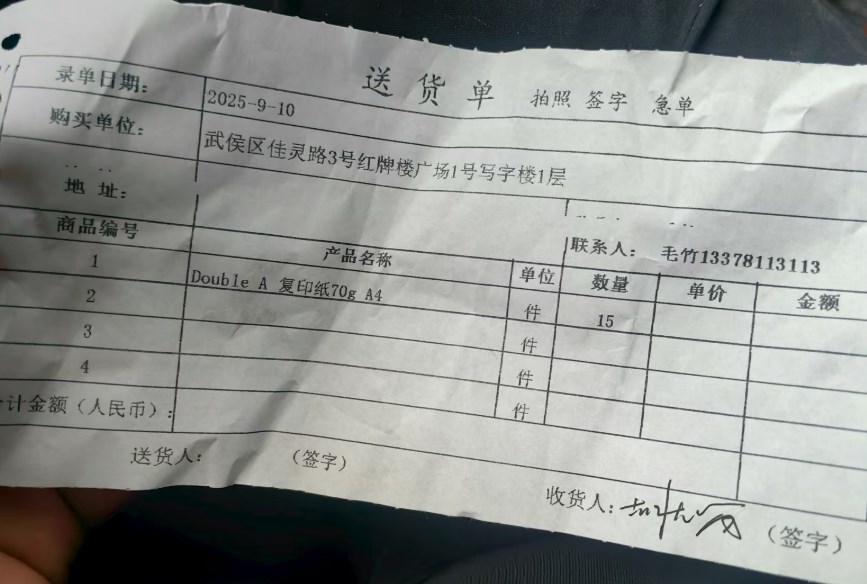 送货单 拍照 签字 急单
录单日期: 2025-9-10
购买单位: 武侯区佳灵路3号红牌楼广场1号写字楼1层
地 址:
联系人: 毛竹13378113113
商品编号 产品名称 单位 数量 单价 金额
1 Double A 复印纸70g A4 件 15
2 件
3 件
4 件
计金额（人民币）:
送货人: （签字）
收货人: （签字）